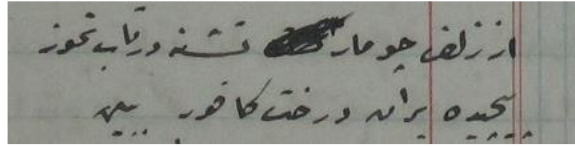 از زلف چو مار تشنه در تاب تموز
پیچیده بران درخت کافور ببین